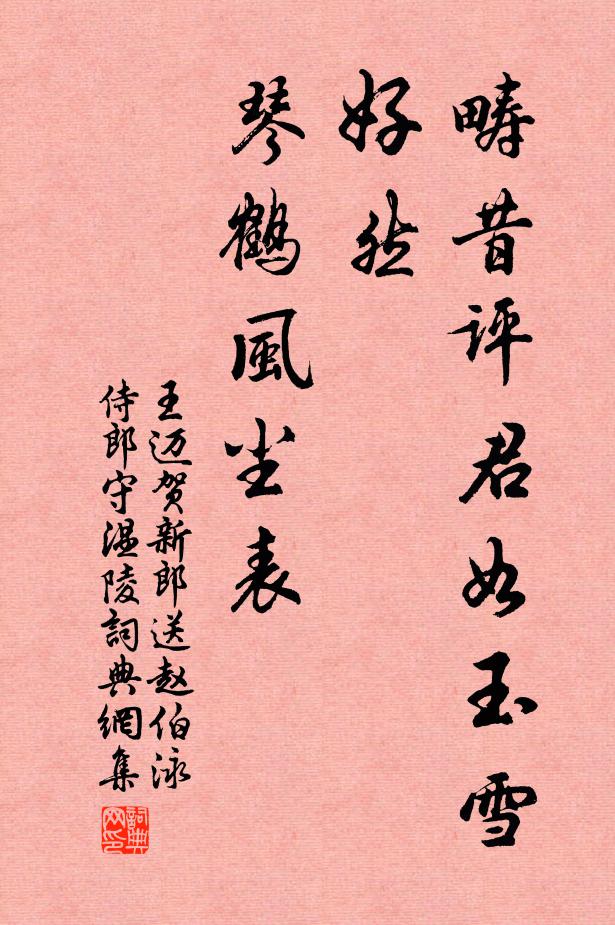 疇昔评君如玉雪
好然
琴鶴風尘表
王迈贺新郎送赵伯泳
侍郎守温陵詞典網集
詞典
网印